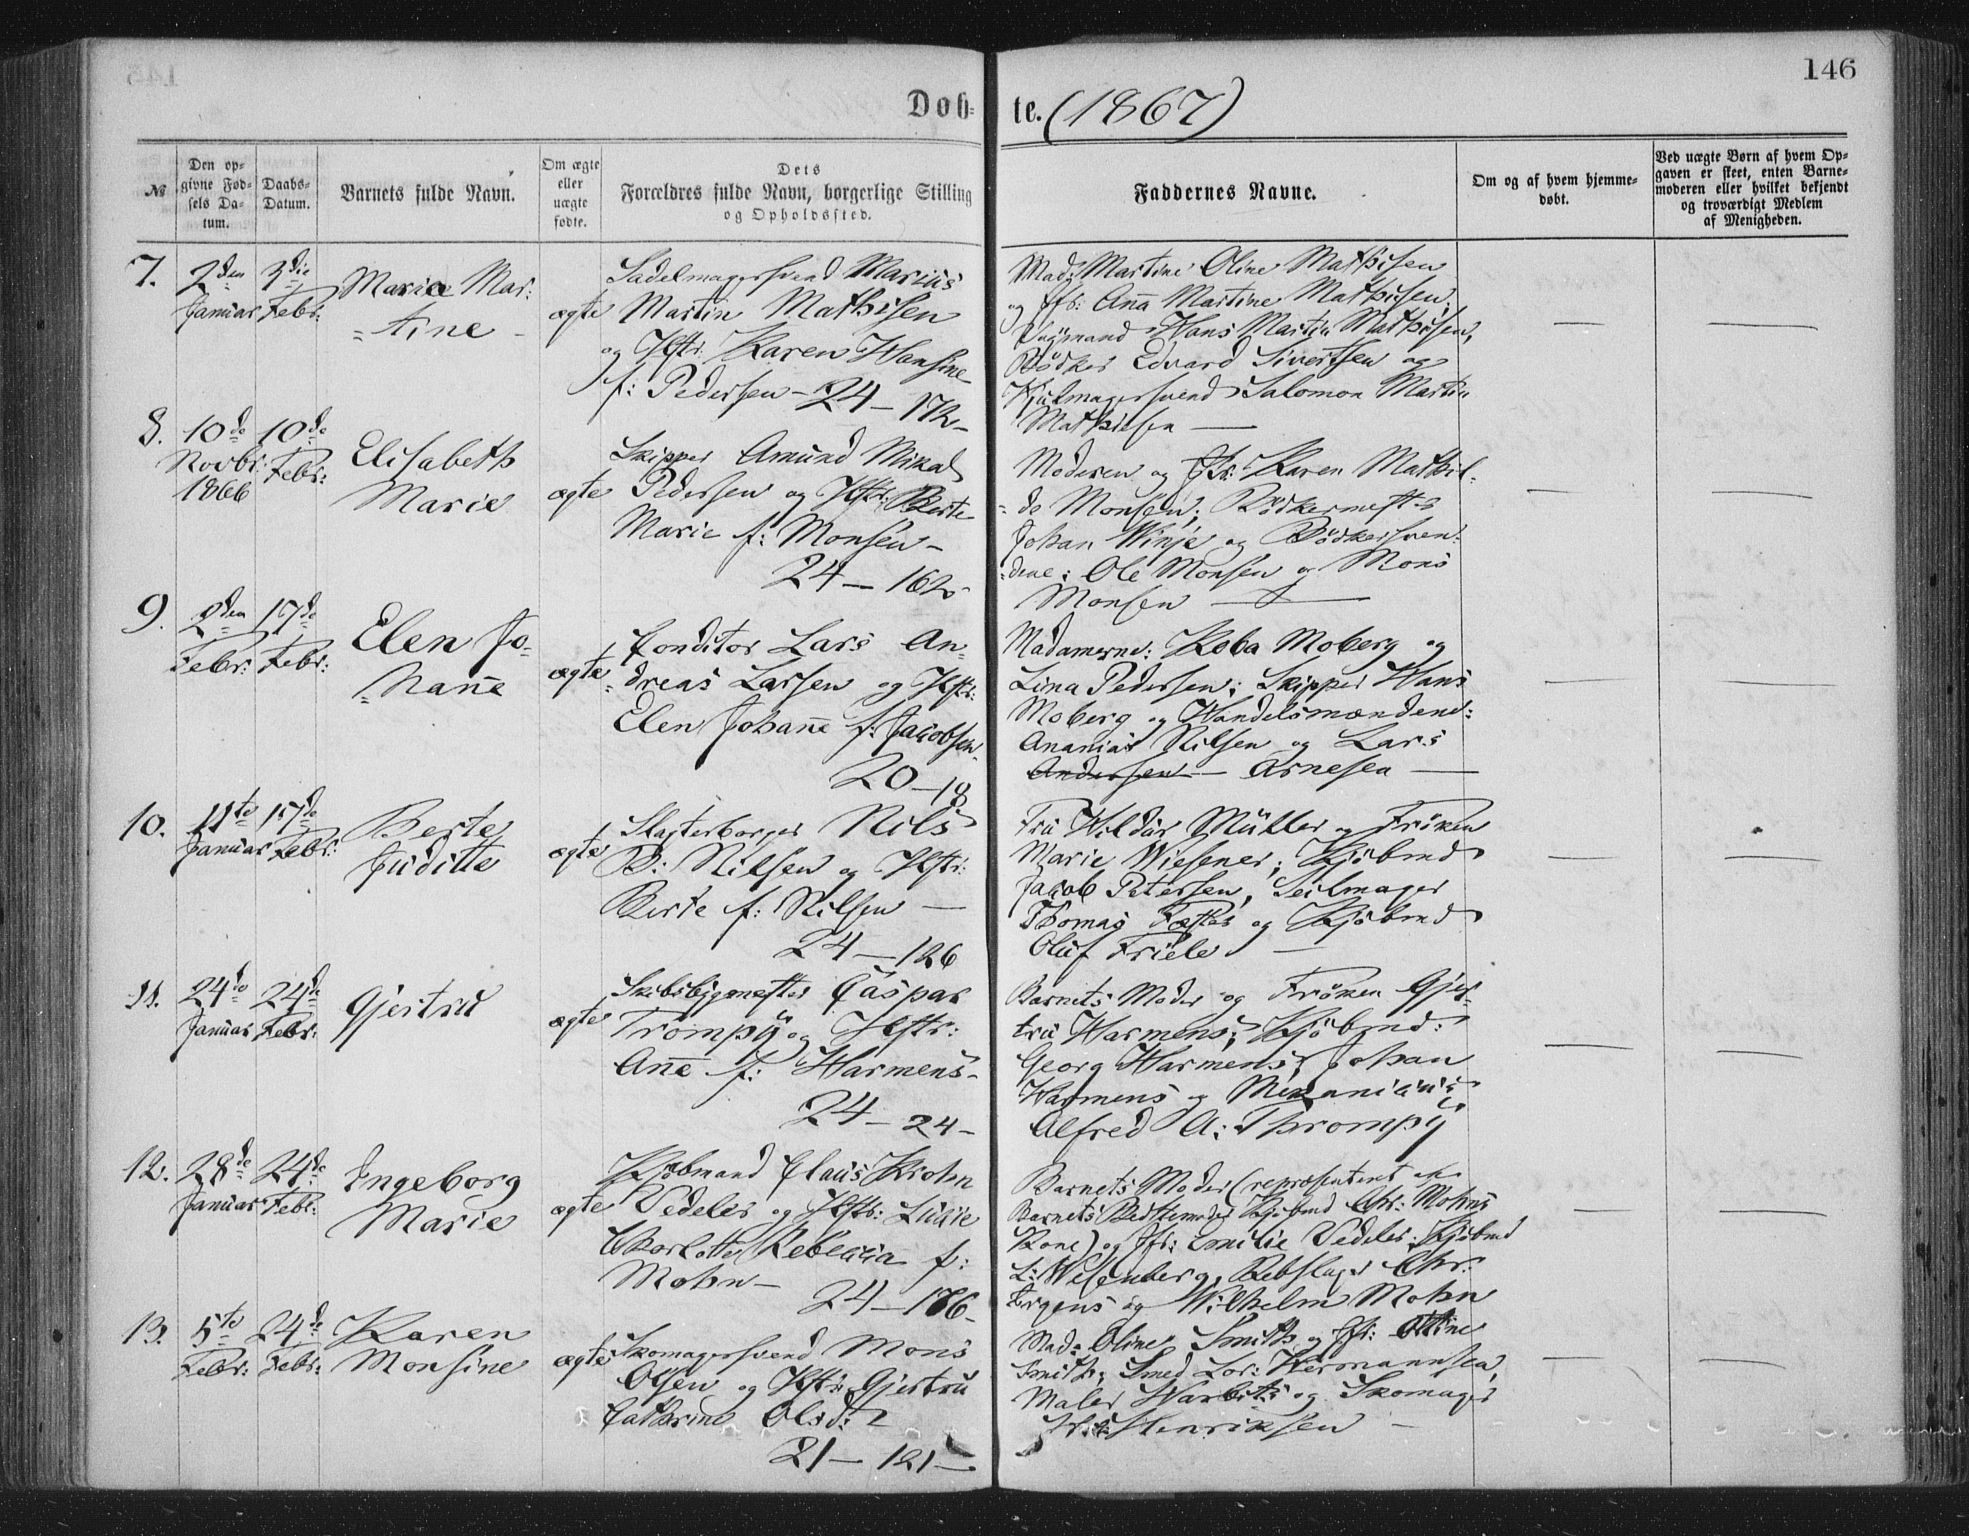 146
Døb-
te. (1867)
№
Den op-
givne Fød-
sels Da-
tum.
Daabs-
Datum.
Barnets fulde Navn.
Om ægte
eller
uægte
fødte.
Dets
Forældres fulde Navn, borgerlige Stilling
og Opholdssted.
Faddernes Navne.
Om og af hvem hjemme-
døbt.
Ved uægte Børn af hvem Op-
gaven er skeet, enten Barne-
moderen eller hvilket bekjendt
og troværdigt Medlem
af Menigheden.
7.
2den
Januar
3die
Febr:
Marie Mar:
tine -
ægte
Sadelmagersvend Marius
Martin Mathisen
og Hstr: Karen Hansine
f: Pedersen - 24 - 172 -
Mad: Martine Oline Mathisen
og Jfr: Anna Martine Mathisen;
Hans Martin Mathisen,
Bødker Edvard Sivertsen og
Hjulmagersvend Salomon Martin
Mathiesen —
8.
10de
Novbr:
1866
10de
Febr:
Elisabeth
Marie
ægte
Skipper Amund Mikal
Pedersen og Hstr: Berte
Marie f: Monsen -
24 - 162 -
Moderen og Jfr: Karen Mathil-
de Monsen; Bødkermester
Johan Winje og Bødkersven-
dene: Ole Monsen og Mons
Monsen —
9.
2den
Febr:
17de
Febr:
Elen Jo-
hanne
ægte
Conditor Lars An-
dreas Larsen og Hstr:
Elen Johanne f: Jacobsen
20 - 18.
Madamerne: Koba Moberg og
Lina Pedersen; Skipper Hans
Moberg og Handelsmændene:
Ananias Nilsen og Lars
Andersen - Arnesen —
10.
11te
Januar
17de
Febr:
Berte
Juditte
ægte
Slagterborger Nils
B: Nilsen og Hstr:
Berte f: Nilsen —
24 - 126
Fru Hildur Müller og Frøken
Marie Wiesener; Kjøbmd
Jacob Petersen, Seilmager
Thomas og Kjøbmd
Oluf Friele —
11.
24de
Januar
24de
Febr:
Gjertru
ægte
Skibsbygmester Caspar
Trompÿ og Hstr:
Anne f: Harmens -
24 - 24 -
Barnets Moder og Frøken Gjer-
tru Harmens; Kjøbmd:
Georg Harmens, Johan
Harmens og Mekanicus
Alfred A: Thrompÿ
12.
28de
Januar
24de
Febr:
Ingeborg
Marie
ægte
Kjøbmand Claus Krohn
Vedeler og Hstr: Lucie
Charlotte Rebecca f:
Mohn -
24 - 176 -
Barnets Moder (repræsenteret af
Barnets Bedstemoder Kjøbmd Chr: Mohns
Kone) og Jfr: Emilie Vedeler; Kjøbmd
L: Wesenberg, Rebslager Chr:
Irgens og Wilhelm Mohn
13.
5te
Febr:
24de
Febr:
Karen
Monsine
ægte
Skomagersvend Mons
Olsen og Hstr: Gjertru
Cathrine Olsd: -
21 - 121 -
Mad: Oline Smith og Jfr: Ottine
Smith; Smed Lor: Hermannsen,
Maler og Skomager
Henriksen —